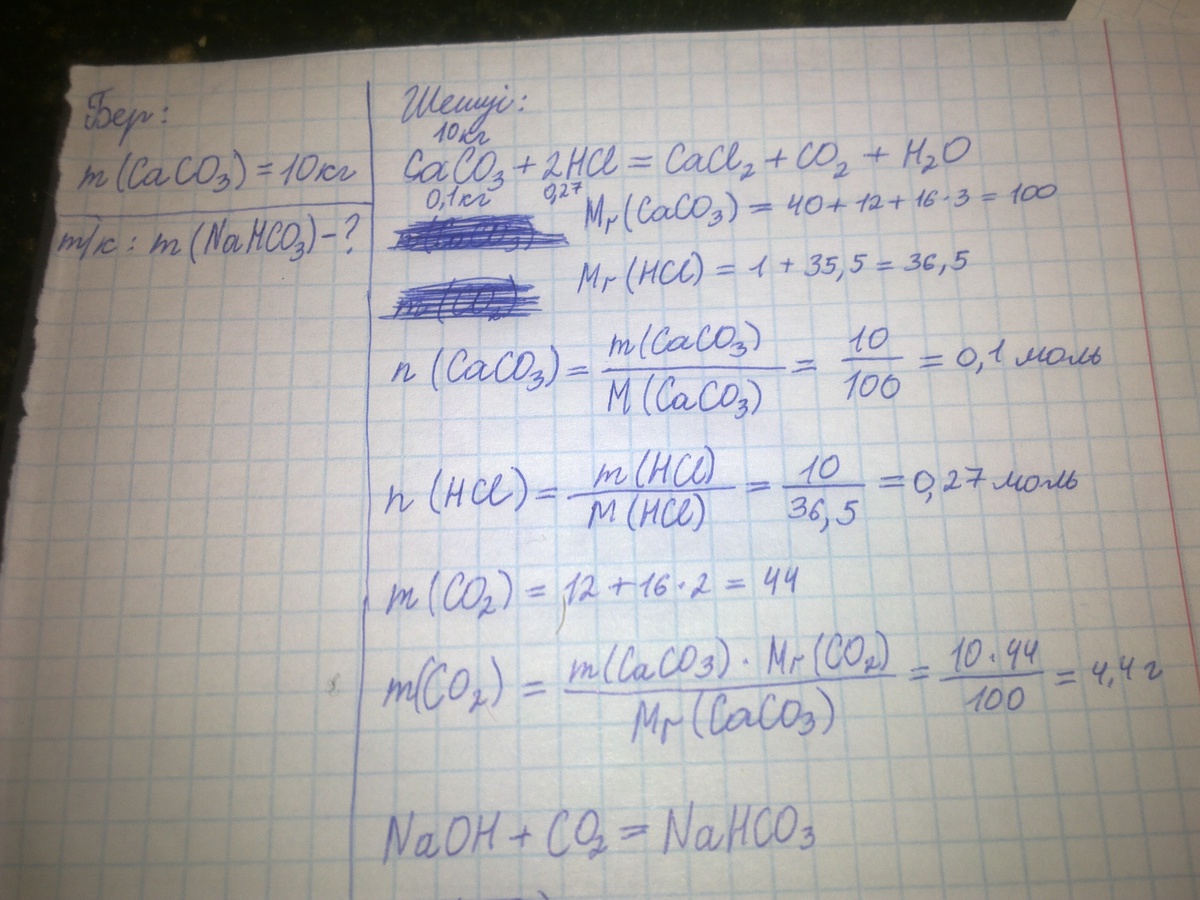 Бер:
m(CaCO₃) = 10кг
т/к: m(NaHCO₃) - ?
Шешуі:
10кг
CaCO₃ + 2HCl = CaCl₂ + CO₂ + H₂O
0,1кг 0,27
Mr(CaCO₃) = 40 + 12 + 16·3 = 100
Mr(HCl) = 1 + 35,5 = 36,5
n(CaCO₃) = m(CaCO₃) / M(CaCO₃) = 10 / 100 = 0,1 моль
n(HCl) = m(HCl) / M(HCl) = 10 / 36,5 = 0,27 моль
m(CO₂) = 12 + 16·2 = 44
m(CO₂) = m(CaCO₃) · Mr(CO₂) / Mr(CaCO₃) = 10·44 / 100 = 4,4 г
NaOH + CO₂ = NaHCO₃